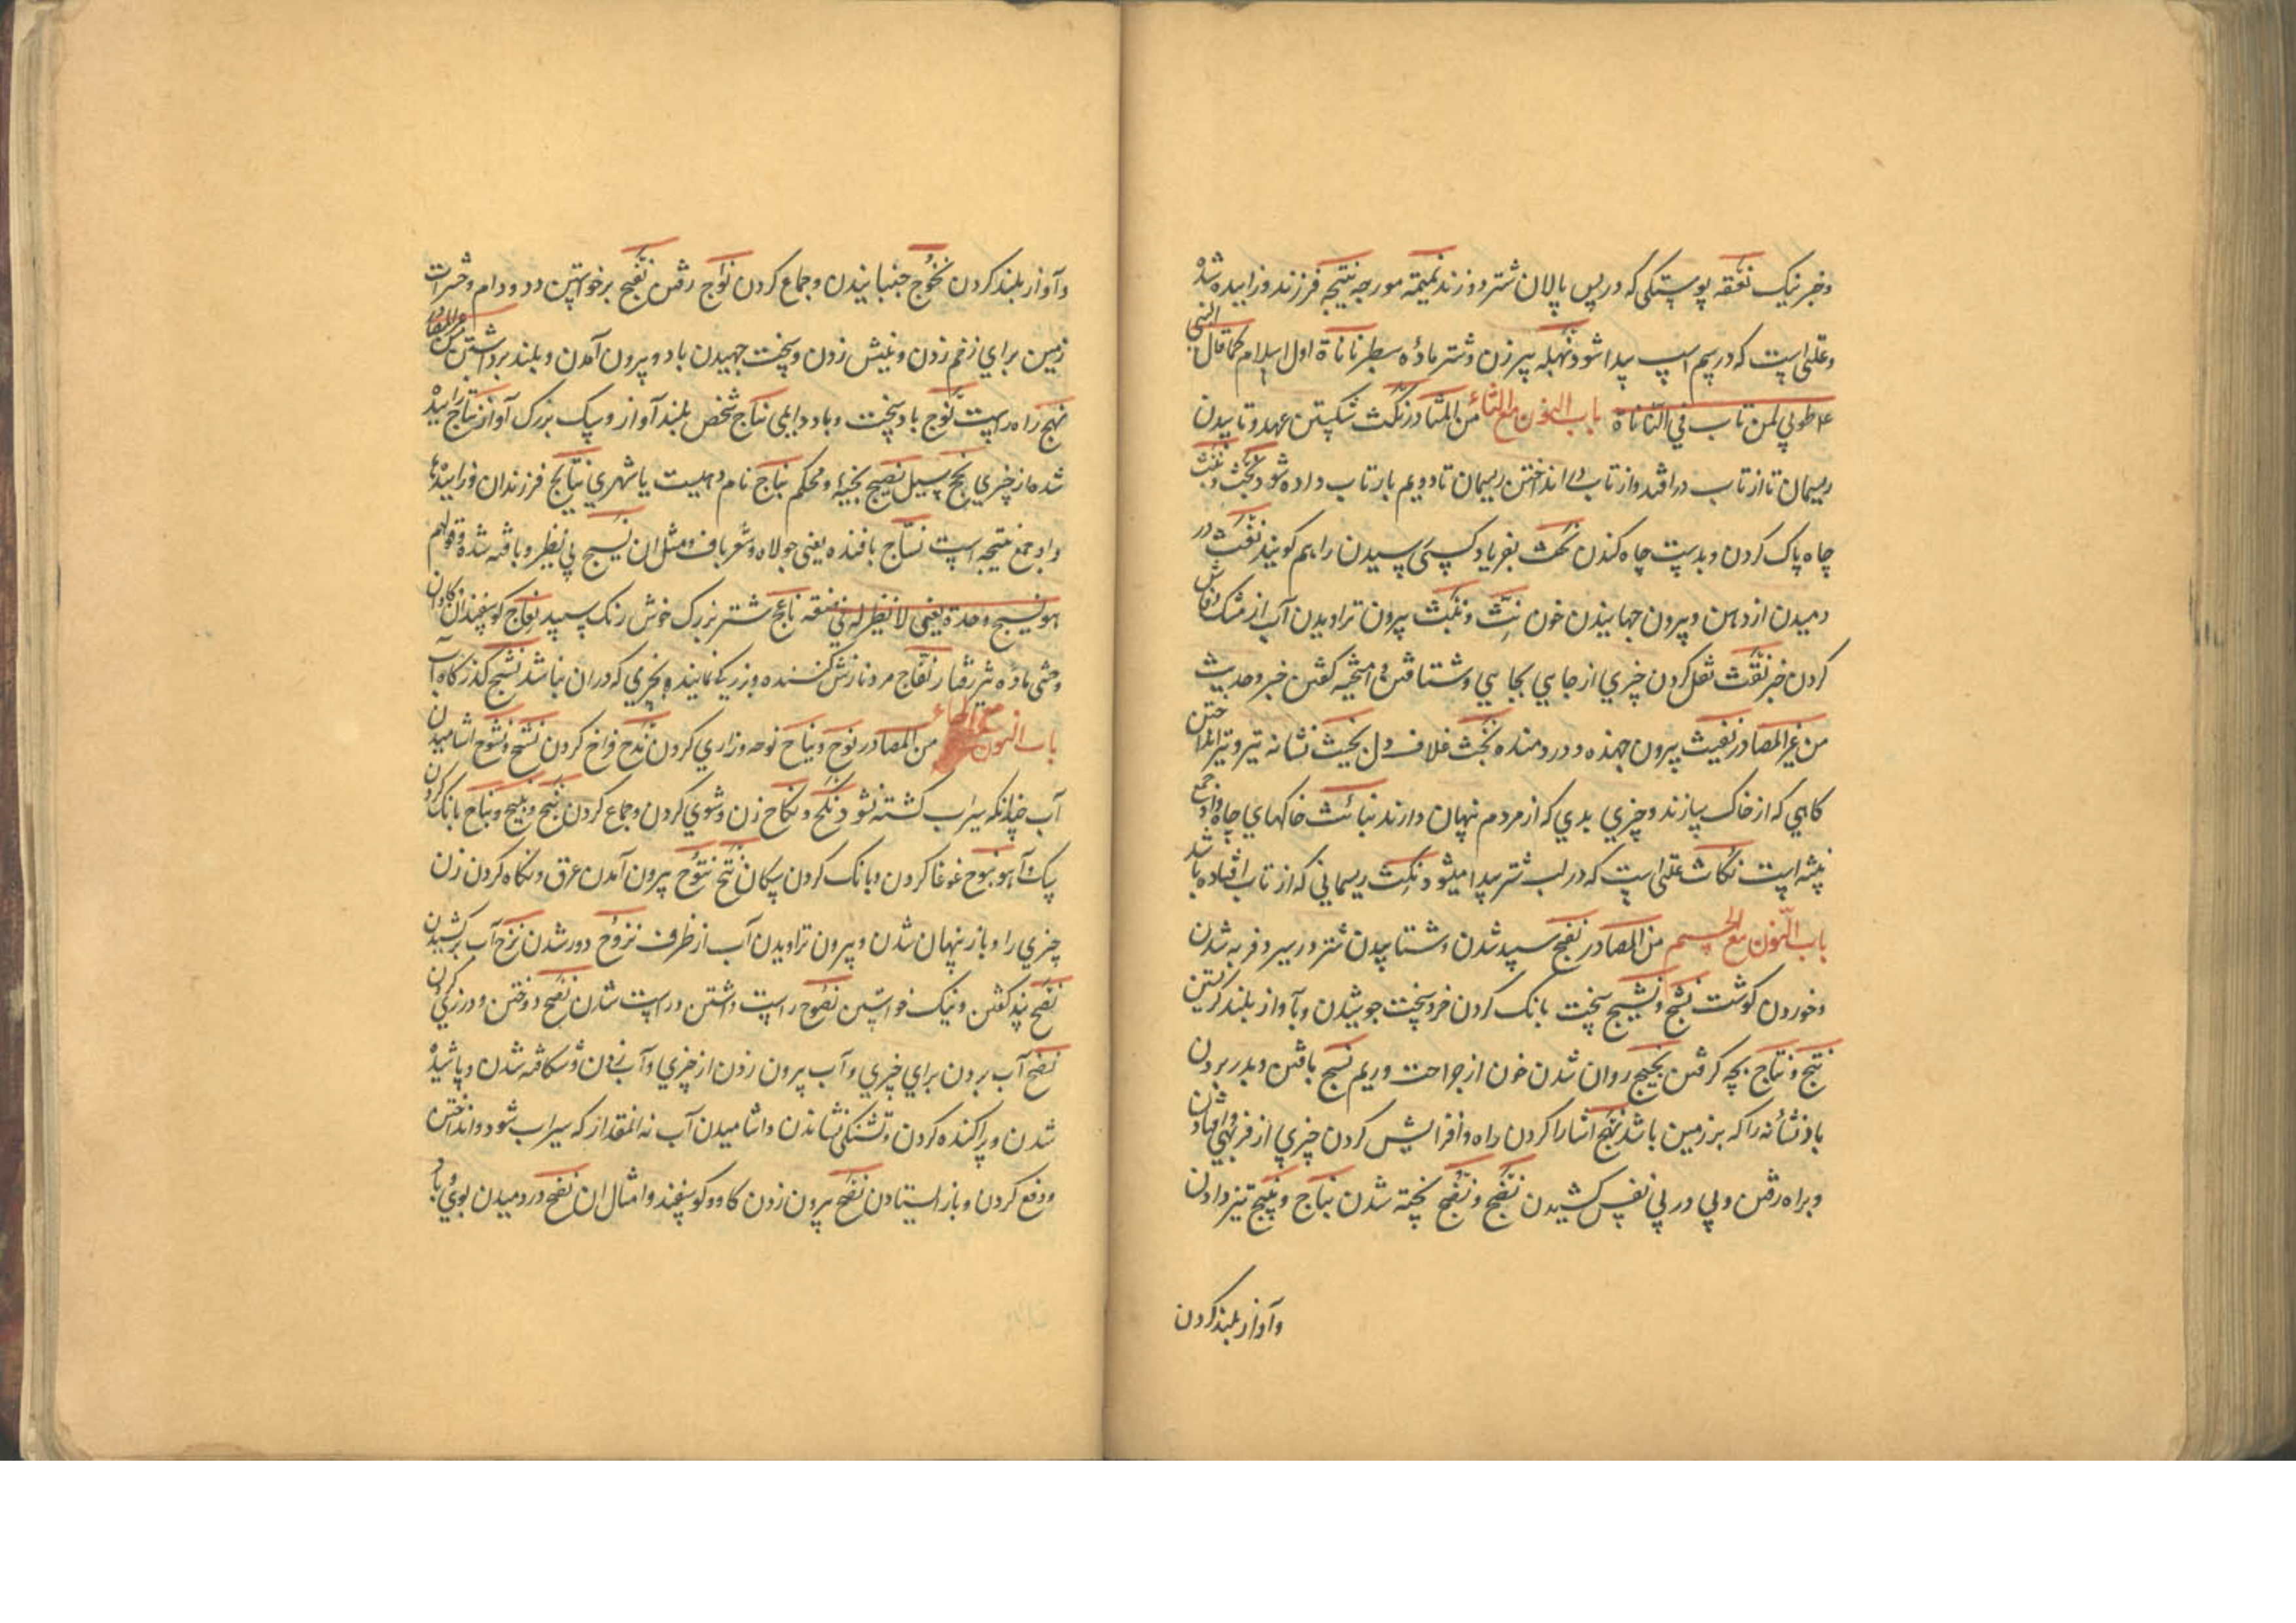 وخبر نیک نغقه پوستکی که در پس پالان شتر دوزند نمیمه مورچه نتیجه فرزند و زاییده شده
وعلتی است که در سم اسپ پیدا شود نهبله پیر زن و شتر ماده سطبر ناناة اول اسلام کما قال النبی
طوبی لمن تاب فی النأناة باب النون مع الثاء من المصادر نکث شکستن عهد و تابیدن
ریسمان تا از تاب در افتد و از تاب انداختن ریسمان تا دویم بار تاب داده شود نجث و نبث
چاه پاک کردن و بدست چاه کندن نجث بفریاد کسی رسیدن را هم کویند نفث در
دمیدن از دهن و بیرون جهانیدن خون نث و نثث بیرون تراویدن آب از مشک و فاش
کردن خبر نقث نقل کردن چیزی از جایی بجایی و شتافتن و امیخته کفتن خبر و حدیث
من غیر المصادر نفیث بیرون جهنده و در دمنده نجث غلاف دل نجیث نشانه تیر و تیر انداختن
کاهی که از خاک سازند و چیزی بدی که از مردم نهان دارند نبائث خاکهای چاه واو جمع
نبیثه است نکاث علتی است که در لب شتر پیدا میشود نکث ریسمانی که از تاب افتاده باشد
باب النون مع الجیم من المصادر نعج سپید شدن و شتابیدن شتر در سیر و فربه شدن
وخوردن کوشت نشج و نشیج سخت بانک کردن خر و سخت جوشیدن و بآواز بلند کریستن
نتج و نتاج بچه کرفتن نجیج روان شدن خون از جراحت و ریم نسج بافتن و بدر بردن
باد نشانه را که بر زمین باشد نهج اشارا کردن راه و افزایش کردن چیزی از فربهی و افتادن
وبراه رفتن و پی در پی نفس کشیدن نضج و نضج پخته شدن نباج و نبیج تیز دادن
وآواز بلند کردن
وآواز بلند کردن نخوج جنبانیدن و جماع کردن نواج رفتن نفج برخواستن دد و دام و حشرات
زمین برای زخم زدن و نیش زدن و سخت جهیدن باد و بیرون آمدن و بلند برداشتن من غیر المصادر
نهج راه راست نؤج باد سخت و باد دایمی نباج شخص بلند آواز و سک بزرک آواز نتاج زاییده
شده از چیزی نج سیل نضیج پخته و محکم نباج نام دهیست یا شهری نتایج فرزندان و زاییدها
واو جمع نتیجه است نساج بافنده یعنی جولاه و شعرباف و مثل ان نسیج بی نظیر و بافته شده وقولهم
هو نسیج وحده یعنی لا نظیر له فی ... ناعج شتر بزرک خوش رنک سپید نعاج کوسفندان و کاوان
وحشی ماده تیز رفتار نفاج مرد نازش کننده و بزرکی نماینده بچیزی که در ان نباشد نشج کذرکاه آب
باب النون مع الحاء من المصادر نوح و نیاح نوحه و زاری کردن ندح فراخ کردن نشح و نشوح اشامیدن
آب چنانکه سیراب کشته نشود نکح و نکاح زن و شوی کردن و جماع کردن نبح و نبیح و نباح بانک کردن
سک و آهو نبوح غوغا کردن و بانک کردن سکان نتح نتوح بیرون آمدن عرق و نکاه کردن زن
چیزی را و باز پنهان شدن و بیرون تراویدن آب از ظرف نزوح دور شدن نزح آب برکشیدن
نصح پند کفتن و نیک خواستن نصوح راست داشتن و راست شدن نصح دوختن و درزی کری
نضح آب بردن برای چیزی و آب بیرون زدن از چیزی و آب زدن و شکافته شدن و پاشیده
شدن و پراکنده کردن و تشنکی نشاندن و اشامیدن آب نه انمقدار که سیراب شود و انداختن
ودفع کردن و باز ایستادن نفح بیرون زدن کاو و کوسفند و امثال ان نفح در دمیدن بوی و باد